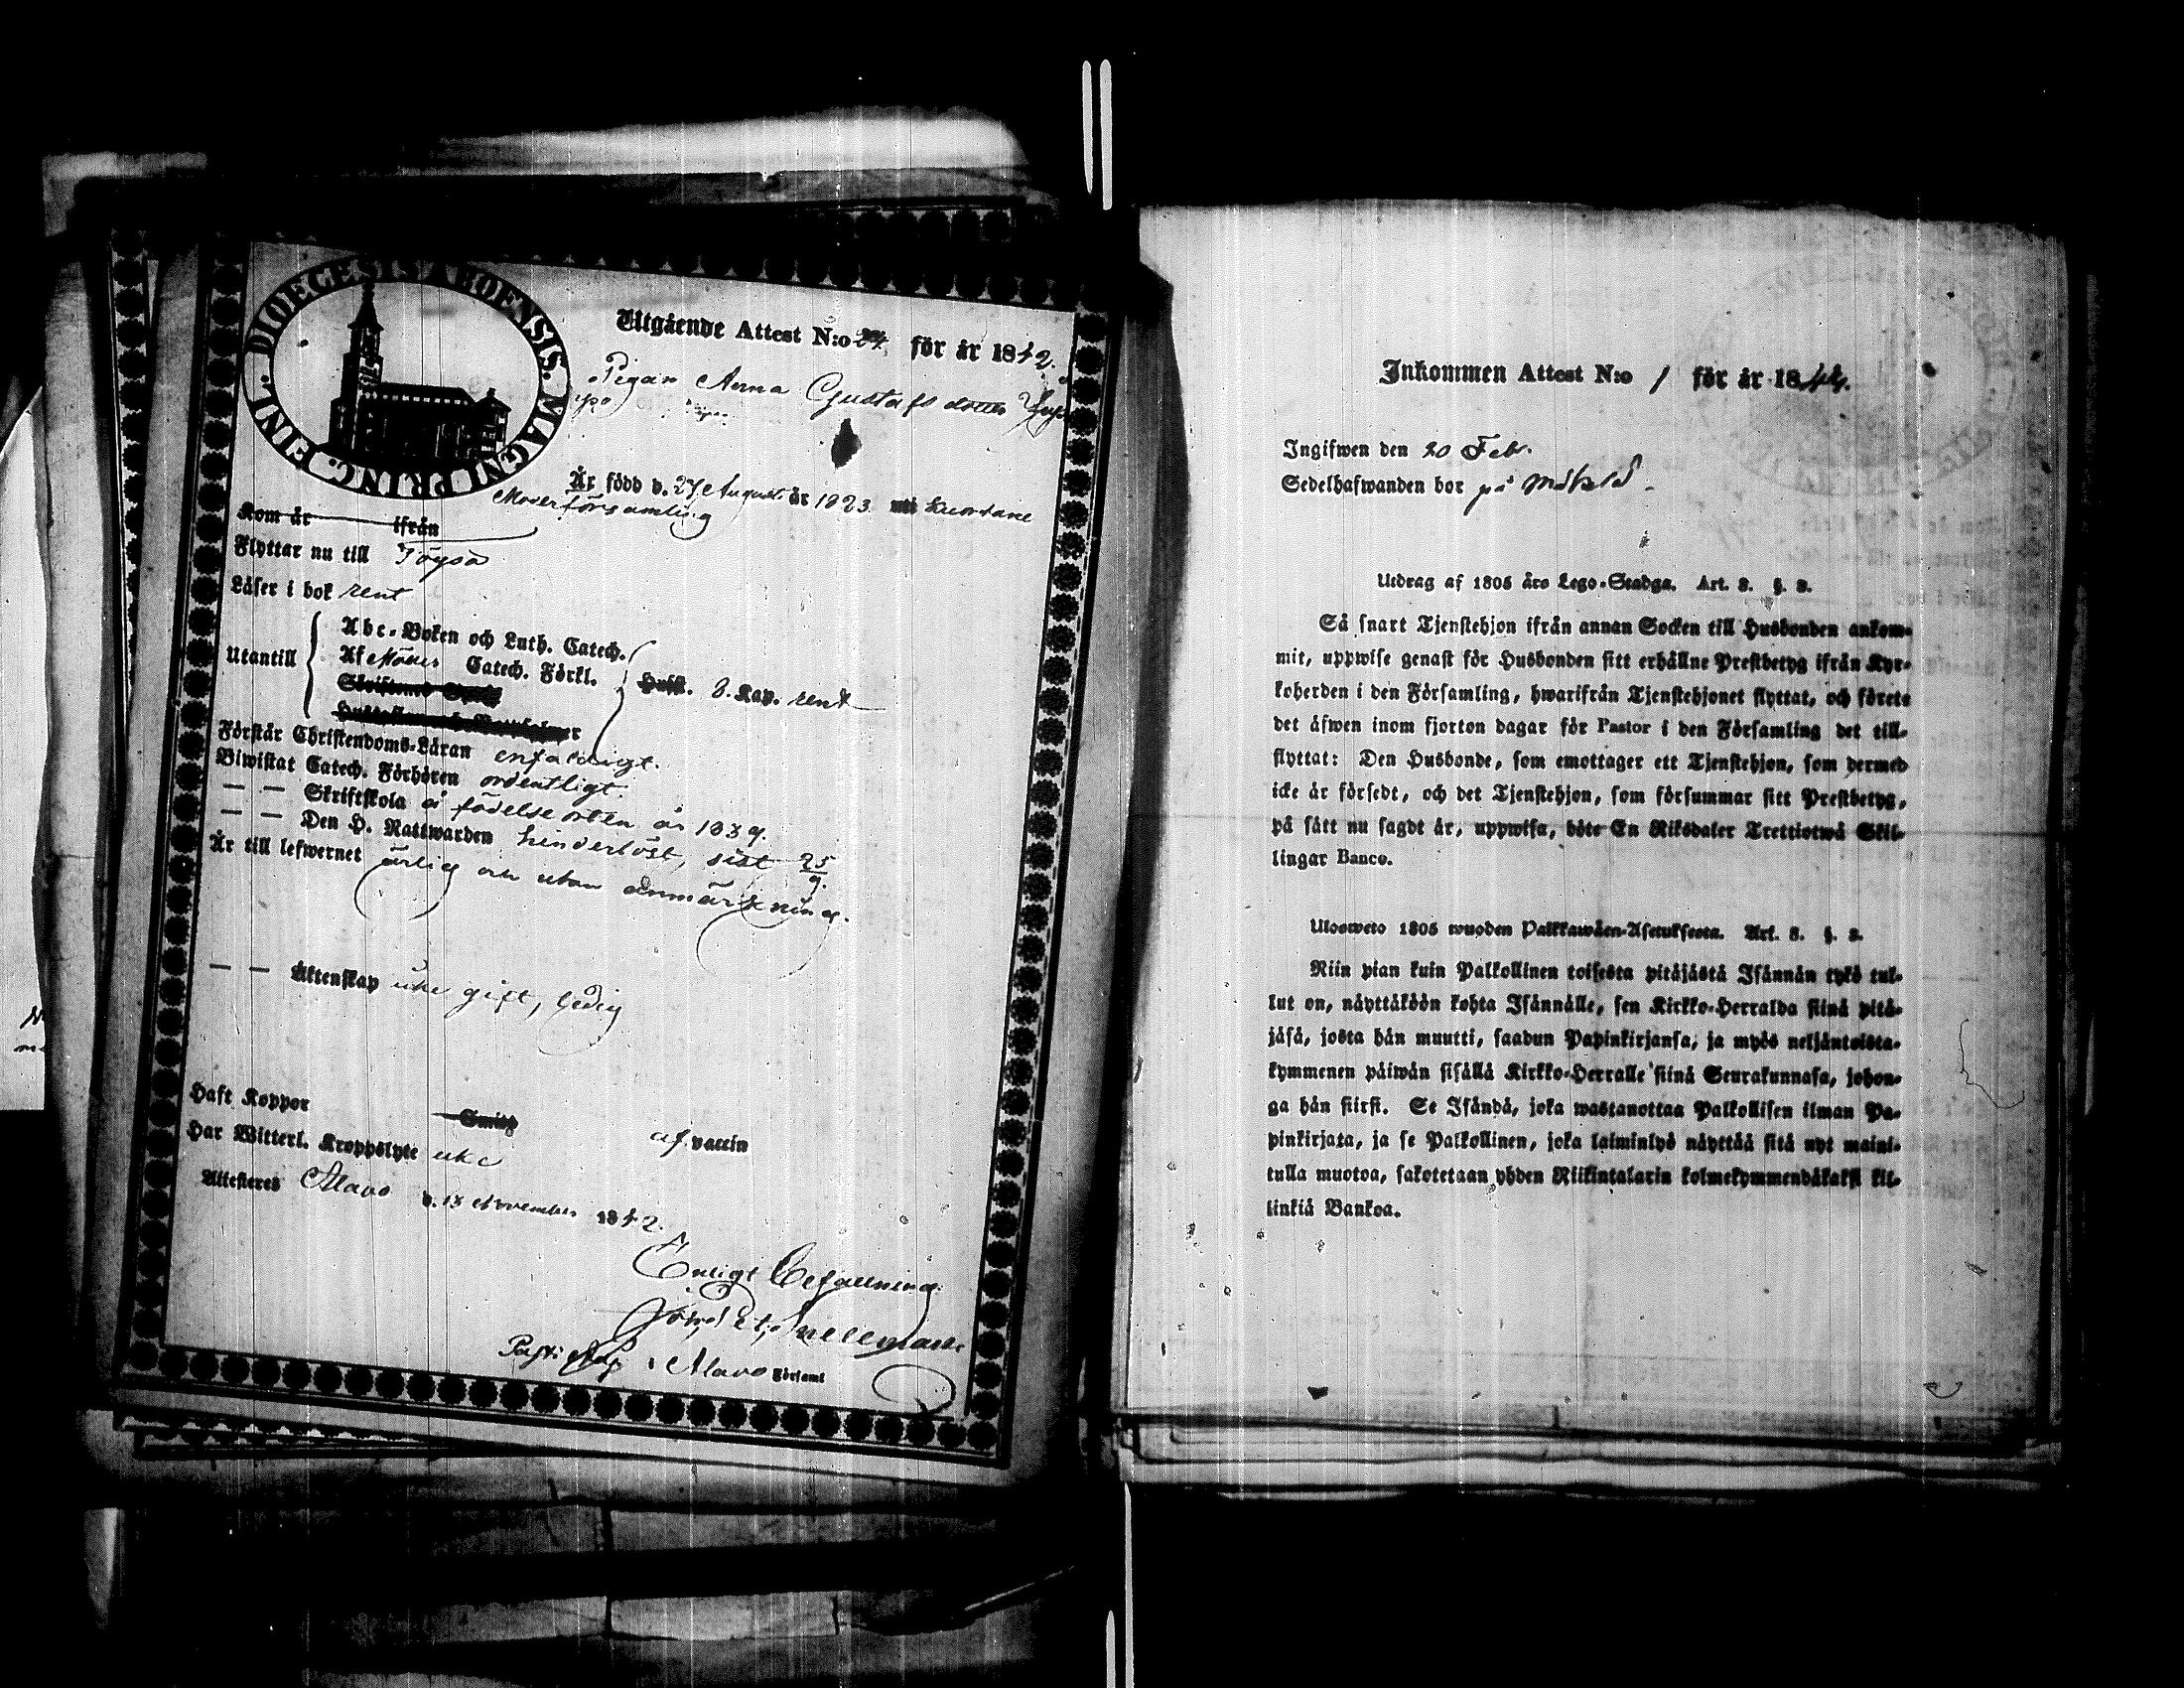 DIOECESIS ABOENSIS. MAGNI PRINC. FINL.
Utgående Attest N:o 24. för år 1842.
Pigan Anna Gustafsdotter
Är född d. 27 Augusti år 1823 uti Kuortane
Moderförsamling
Kom år ifrån
Flyttar nu till Töysä
Läser i bok rent
Utantill
Abc-Boken och Luth. Catech.
Af Catech. Förkl.
3. Kap. rent
Förstår Christendoms-Läran enfaldigt.
Biwistat Catech. Förhören ordentligt.
— — Skriftskola å födelseorten år 1839.
— — Den H. Nattwarden hinderlöst, sist 25/9.
Är till lefwernet ärlig och utan anmärkning.
— — Äktenskap icke gift, ledig
Haft Koppor Smitt af vaccin
Har Witterl. Kroppslyte icke
Attesteres Alavo d. 18 November 1842.
Enligt Befallning
Snellman
i Alavo Församl
Inkommen Attest N:o 1 för år 1844.
Ingifwen den 20 Febr.
Sedelhafwanden bor på
Utdrag af 1805 års Lego-Stadga. Art. 3. §. 2.
Så snart Tjenstehjon ifrån annan Socken till Husbonden ankom-
mit, uppwise genast för Husbonden sitt erhållne Prestbetyg ifrån Kyr-
koherden i den Församling, hwarifrån Tjenstehjonet flyttat, och förete
det äfwen inom fjorton dagar för Pastor i den Församling det till-
flyttat: Den Husbonde, som emottager ett Tjenstehjon, som dermed
icke är försedt, och det Tjenstehjon, som försummar sitt Prestbetyg,
på sätt nu sagdt är, uppwisa, böte En Riksdaler Trettiotwå Skil-
lingar Banco.
Ulosweto 1805 wuoden Palkkawäen-Asetuksesta. Art. 3. §. 2.
Niin pian kuin Palkollinen toisesta pitäjästä Isännän tykö tul-
lut on, näyttäköön kohta Isännälle, sen Kirkko-Herralda siinä pitä-
jäsä, josta hän muutti, saadun Papinkirjansa, ja myös neljäntoista-
kymmenen päiwän sisällä Kirkko-Herralle siinä Seurakunnasa, johon-
ga hän siirsi. Se Isändä, joka wastanottaa Palkollisen ilman Pa-
pinkirjata, ja se Palkollinen, joka laiminlyö näyttää sitä nyt maini-
tulla muotoa, sakotetaan yhden Riikintalarin kolmekymmendäkaksi kil-
linkiä Bankoa.